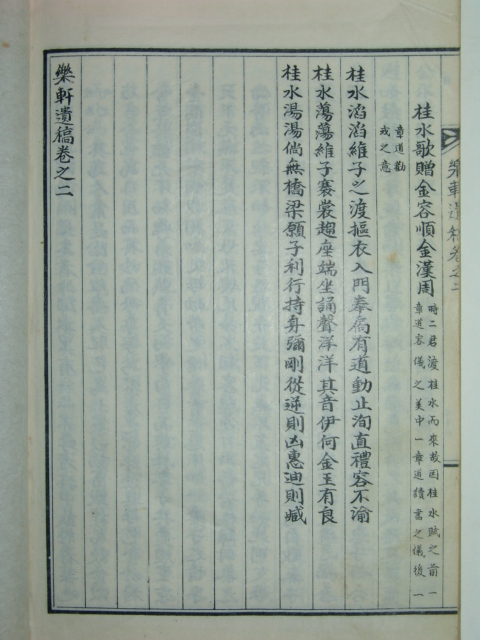 樂軒遺稿卷之二
桂水歌贈金容順金漢周
時二君渡桂水而來故因桂水賦之前一
章道容儀之美中一章道讀書之儀後一
章道勸
戒之意
桂水滔滔維子之渡摳衣入門奉腐有道動止洵直禮容不渝
桂水蕩蕩維子褰裳趨座端坐誦聲洋洋其音伊何金玉有良
桂水湯湯倘無橋梁願子利行持身彌剛從逆則凶惠迪則臧
樂軒遺稿卷之二